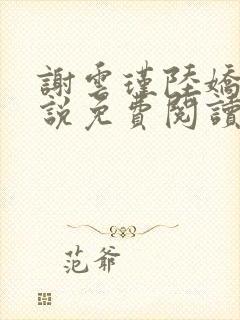 謝雲瑾陸嬌
說免費閱讀
范爺